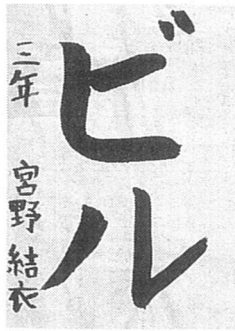 ビル
三年 宮野結衣